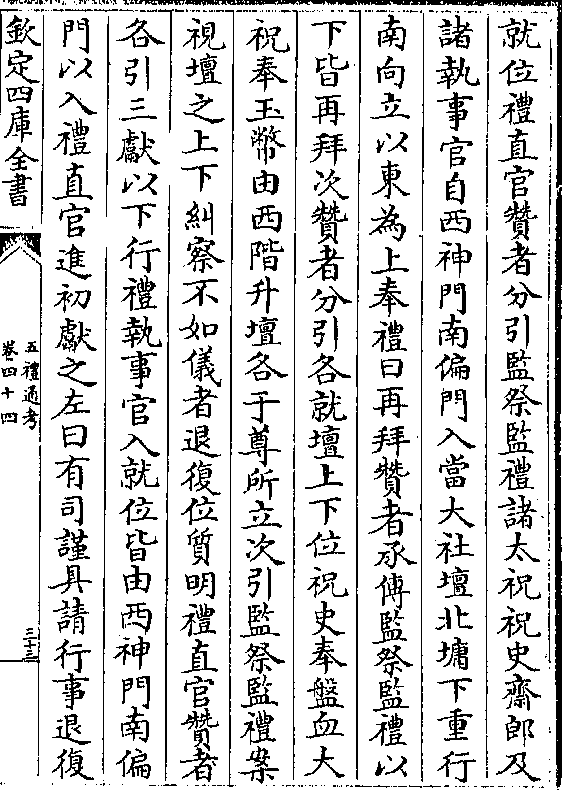 就位禮直官贊者分引監祭監禮諸太祝祝史齋郎及
諸執事官自西神門南偏門入當大社壇北墉下重行
南向立以東為上奉禮曰再拜贊者承傳監祭監禮以
下皆再拜次贊者分引各就壇上下位祝史奉盤血大
祝奉玉幣由西階升壇各于尊所立次引監祭監禮案
視壇之上下糾察不如儀者退復位質明禮直官贊者
各引三獻以下行禮執事官入就位皆由西神門南偏
門以入禮直官進初獻之左曰有司謹具請行事退復
欽定四庫全書
五禮通考
卷四十四
三十三